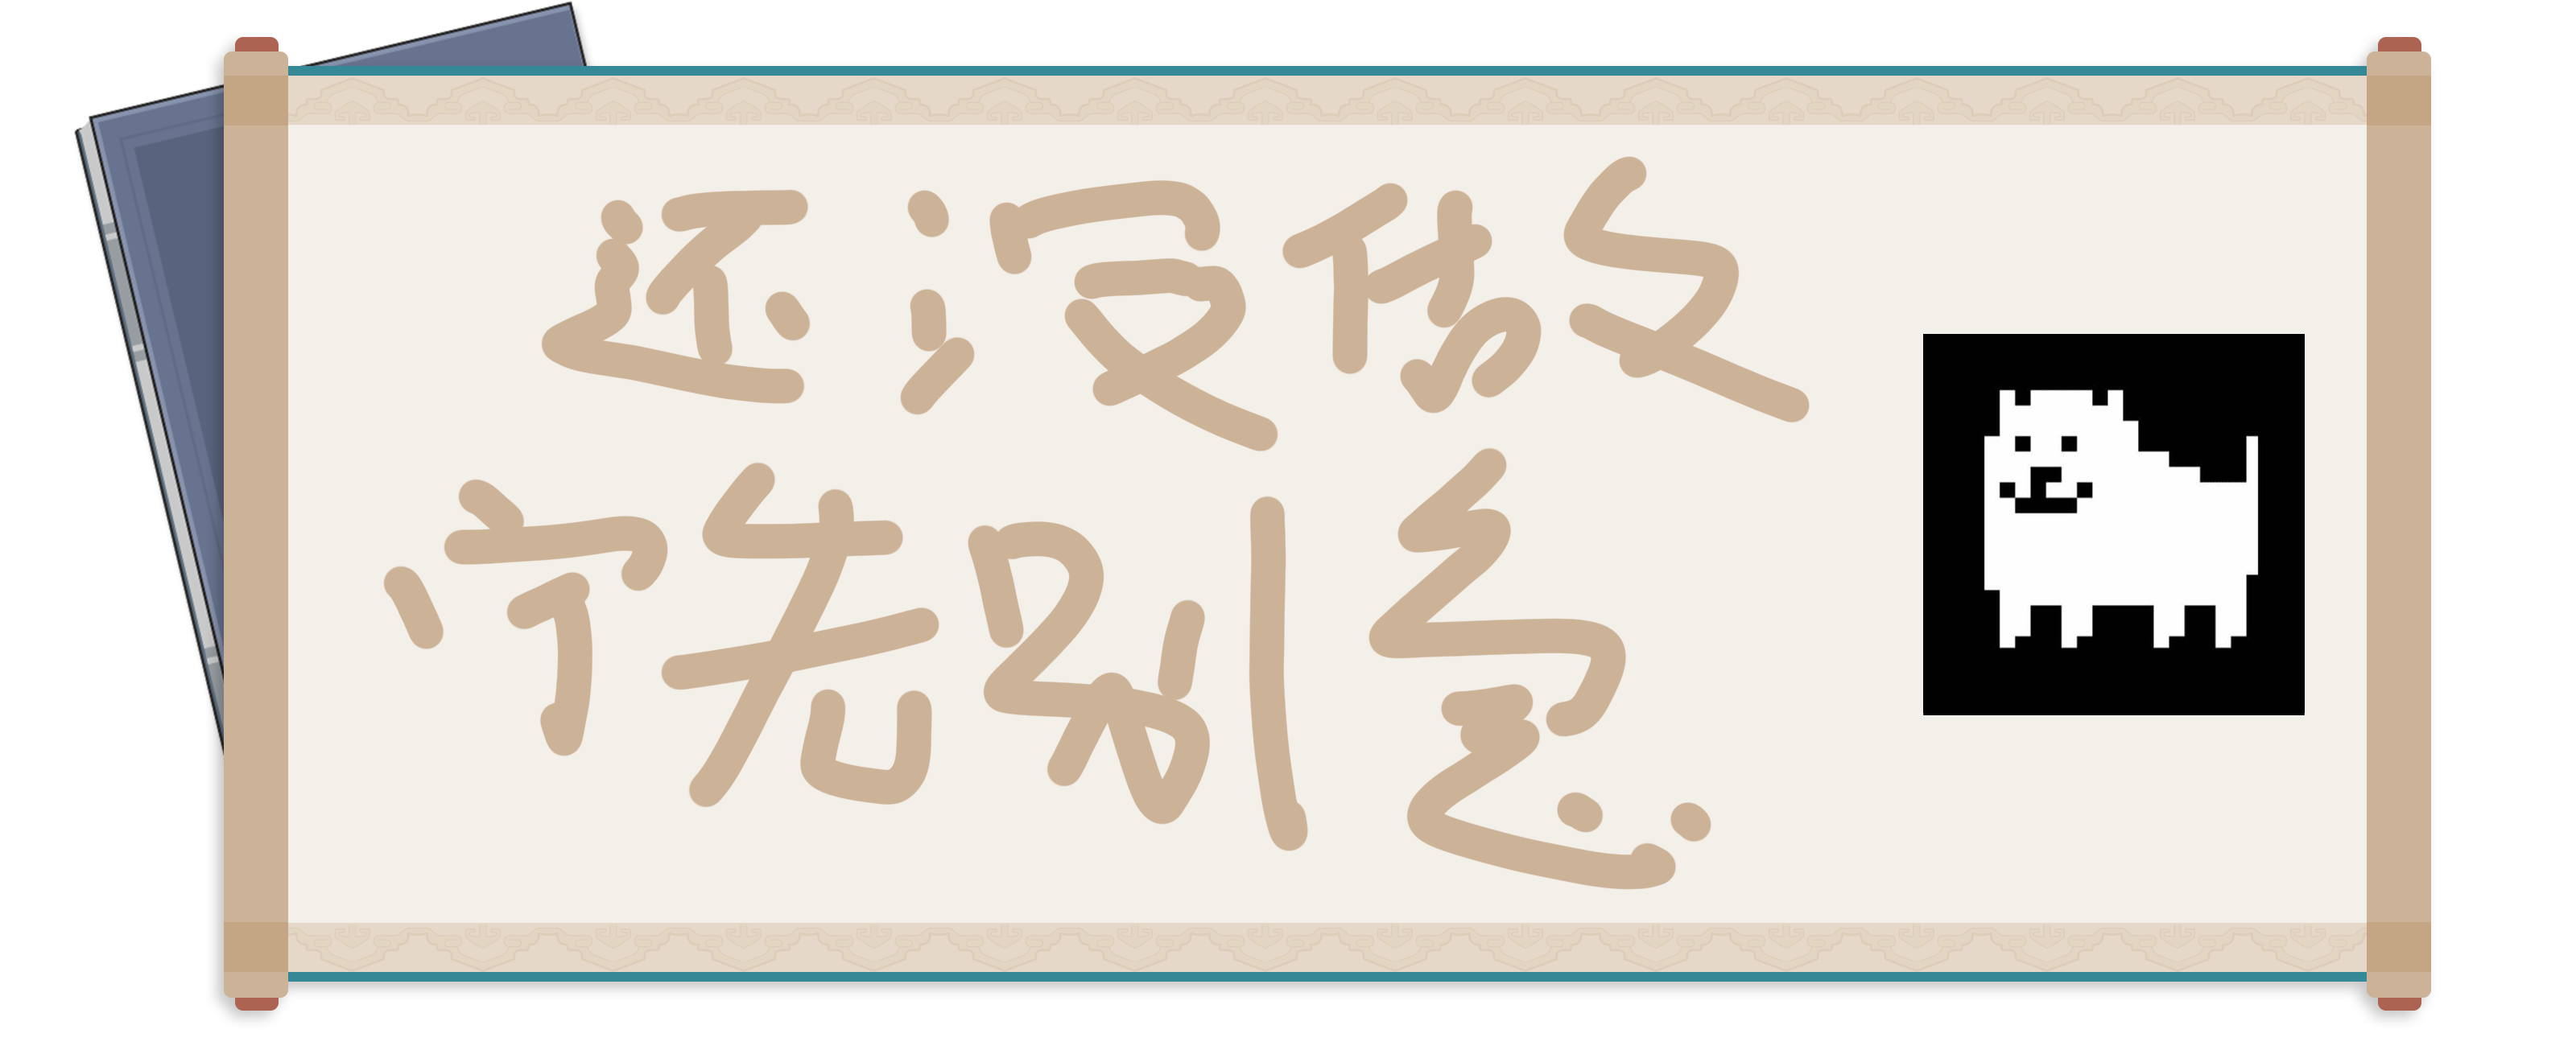 还没做
宁先别急